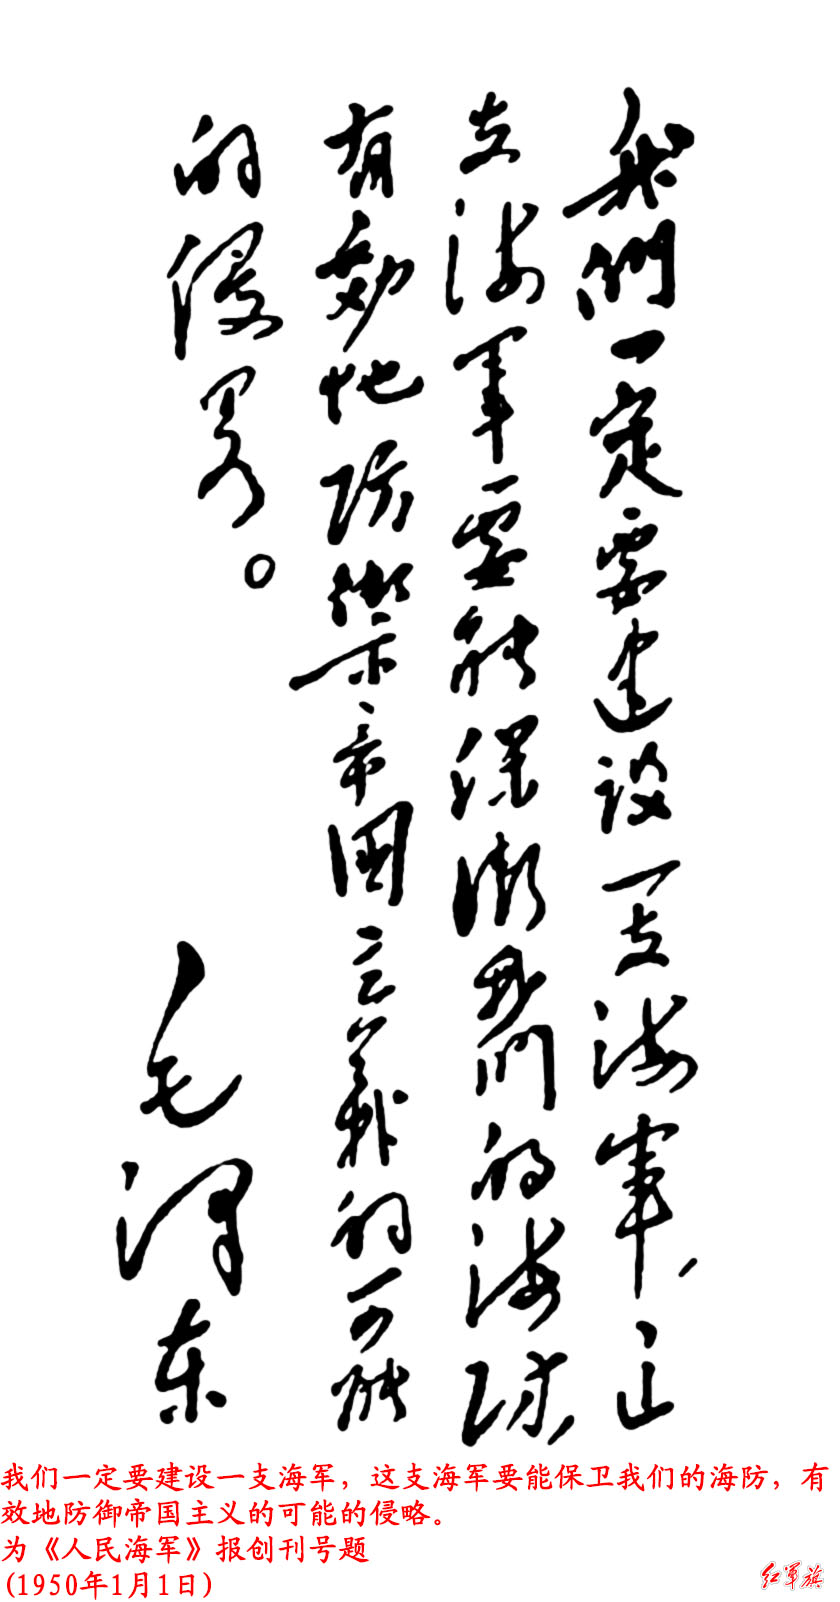 我們一定要建设一支海军，这
支海军要能保衛我們的海防，
有効地防禦帝国主義的可能
的侵畧。
毛泽东
我们一定要建设一支海军，这支海军要能保卫我们的海防，有
效地防御帝国主义的可能的侵略。
为《人民海军》报创刊号题
(1950年1月1日)
红军旗